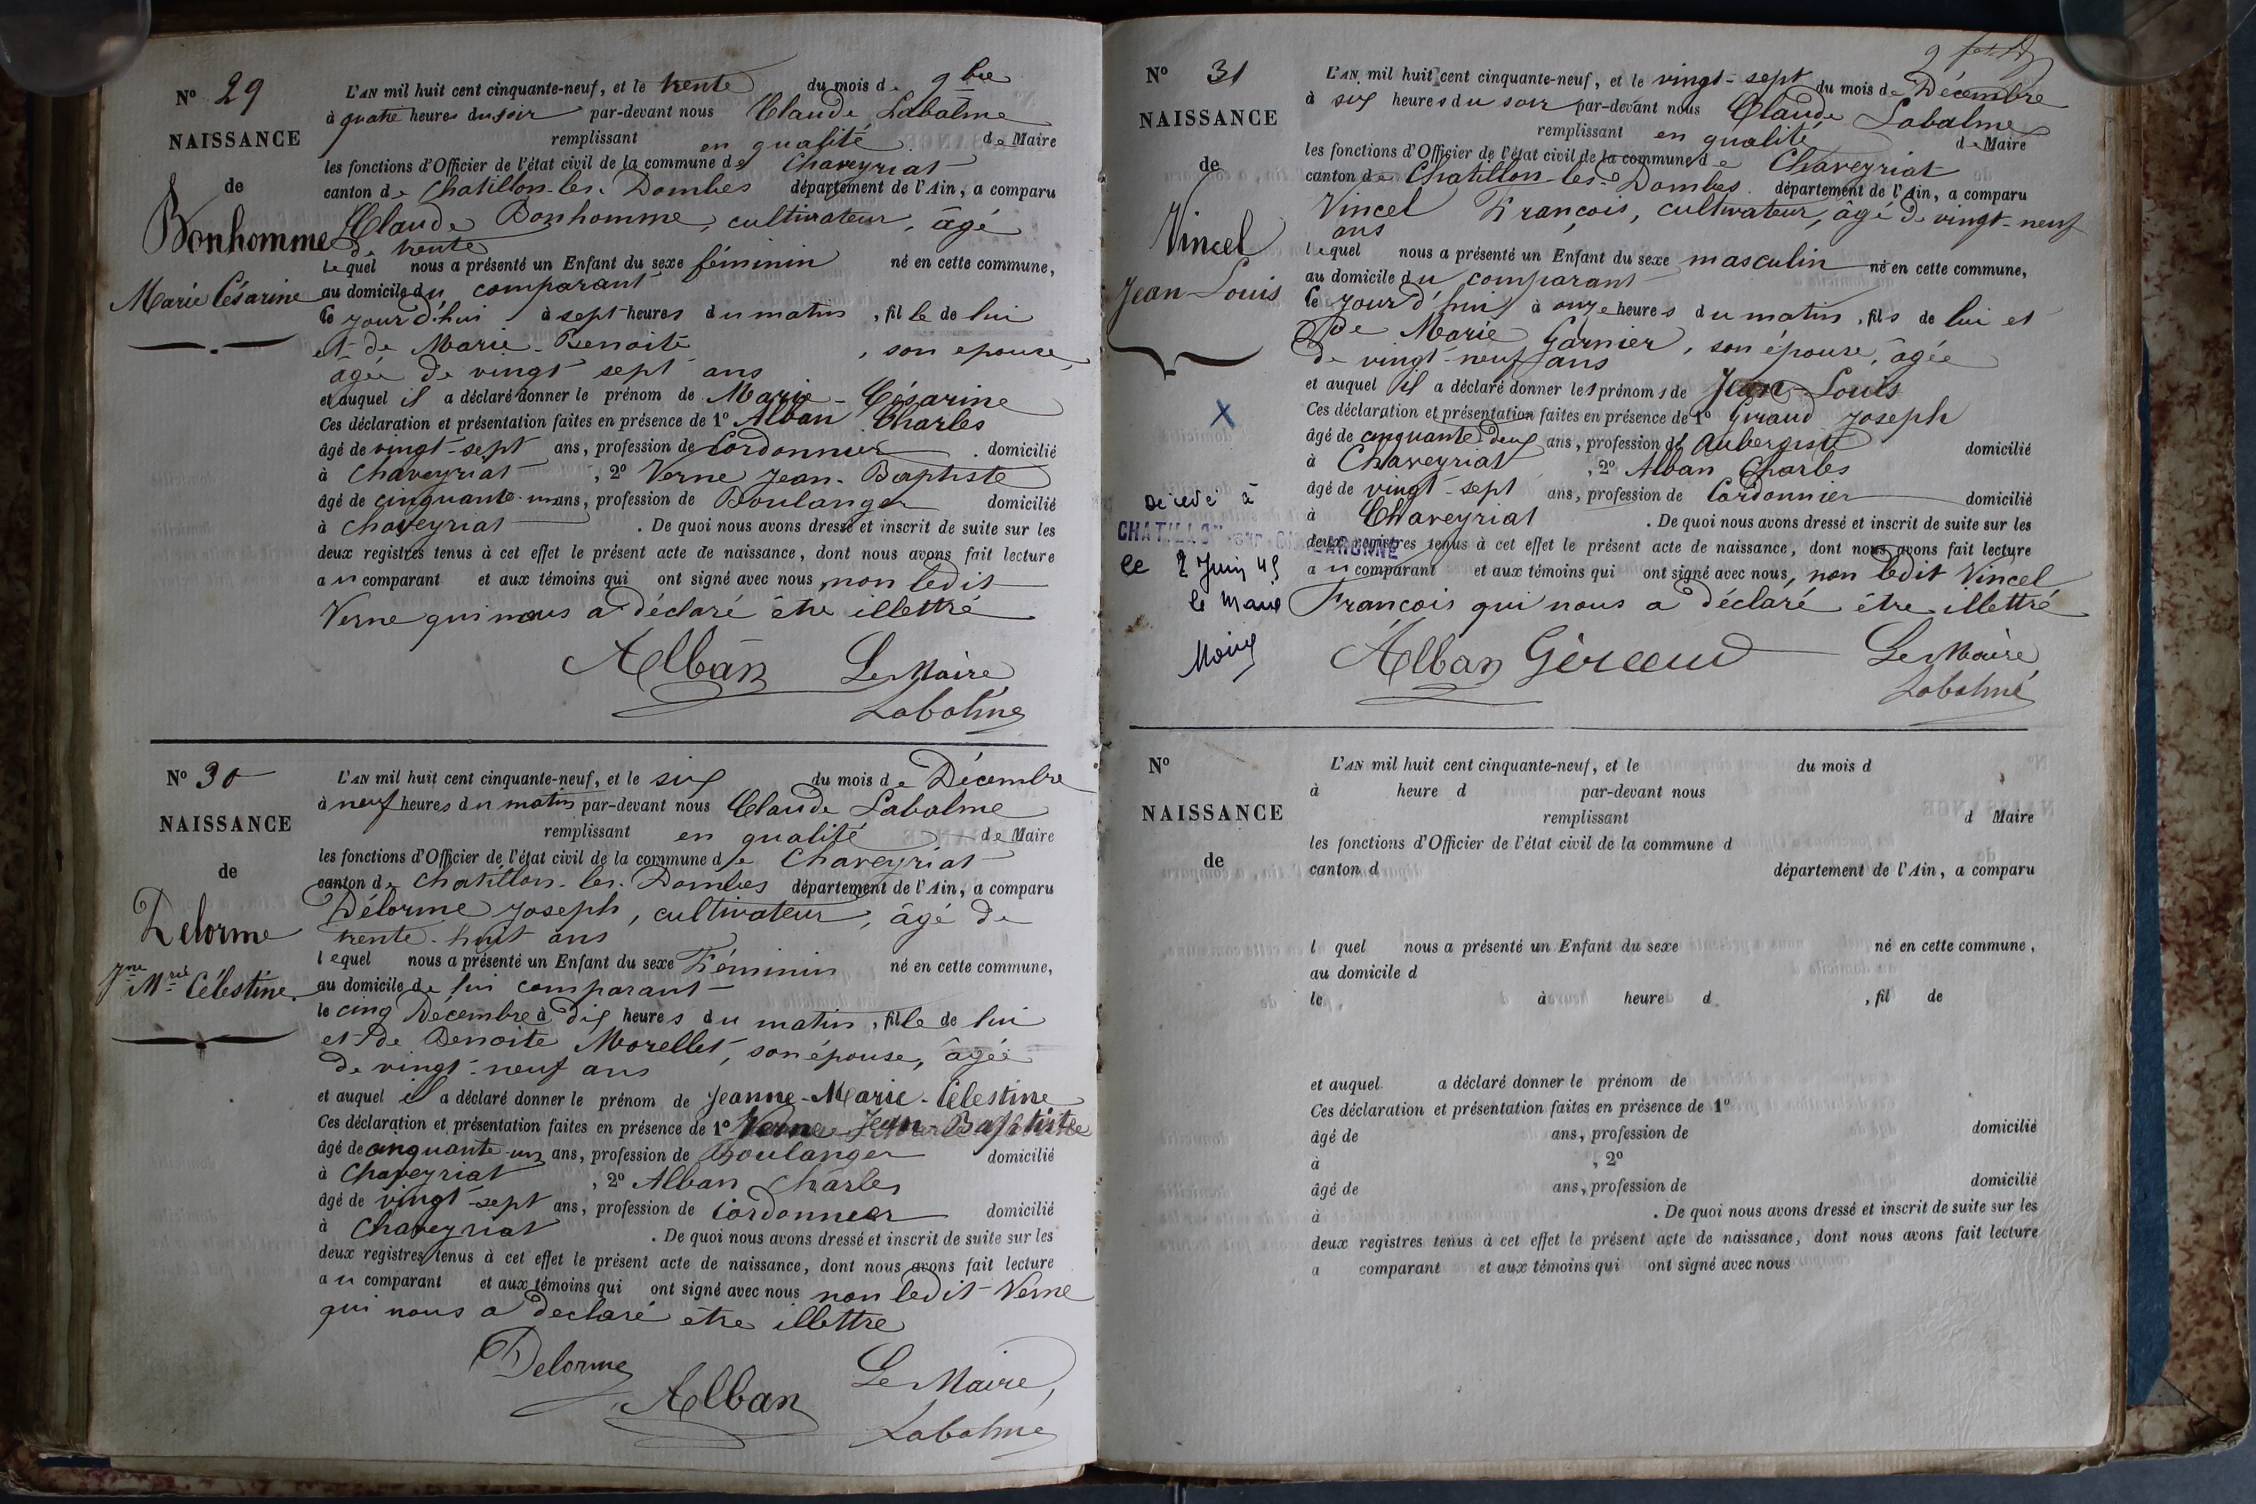 N° 29
NAISSANCE
de
Bonhomme
Marie Césarine
L'AN mil huit cent cinquante-neuf, et le trente du mois de 9bre
à quatre heures du soir par-devant nous Claude Labalme
remplissant en qualité de Maire
les fonctions d'Officier de l'état civil de la commune de Chaveyriat
canton de Chatillon-les-Dombes département de l'Ain, a comparu
Claude Bonhomme, cultivateur, âgé
de trente
lequel nous a présenté un Enfant du sexe féminin né en cette commune,
au domicile du comparant
le jour d'hui à sept heures du matin, fille de lui
et de Marie Benoite, son épouse,
agée de vingt sept ans
et auquel il a déclaré donner le prénom de Marie-Césarine
Ces déclaration et présentation faites en présence de 1° Alban Charles
âgé de vingt-sept ans, profession de Cordonnier domicilié
à Chaveyriat, 2° Verne Jean-Baptiste
âgé de cinquante-un ans, profession de Boulanger domicilié
à Chaveyriat. De quoi nous avons dressé et inscrit de suite sur les
deux registres tenus à cet effet le présent acte de naissance, dont nous avons fait lecture
au comparant et aux témoins qui ont signé avec nous, non ledit
Verne qui nous a déclaré être illettré
Alban Le Maire
Labalme
N° 30
NAISSANCE
de
Delorme
Jne Mrie Célestine
L'AN mil huit cent cinquante-neuf, et le six du mois de Décembre
à neuf heures du matin par-devant nous Claude Labalme
remplissant en qualité de Maire
les fonctions d'Officier de l'état civil de la commune de Chaveyriat
canton de Chatillon-les-Dombes département de l'Ain, a comparu
Délorme Joseph, cultivateur, âgé de
trente-huit ans
lequel nous a présenté un Enfant du sexe Féminin né en cette commune,
au domicile de lui comparant
le cinq Décembre à dix heures du matin, fille de lui
et de Benoite Morellet, son épouse, âgée
de vingt-neuf ans
et auquel il a déclaré donner le prénom de Jeanne-Marie-Célestine
Ces déclaration et présentation faites en présence de 1° Verne Jean-Baptiste
âgé de cinquante-un ans, profession de Boulanger domicilié
à Chaveyriat, 2° Alban Charles
âgé de vingt-sept ans, profession de Cordonnier domicilié
à Chaveyriat. De quoi nous avons dressé et inscrit de suite sur les
deux registres tenus à cet effet le présent acte de naissance, dont nous avons fait lecture
au comparant et aux témoins qui ont signé avec nous non ledit Verne
qui nous a declaré être illettre
Delorme
Alban Le Maire,
Labalme
N° 31
NAISSANCE
de
Vincel
Jean-Louis
X
Décédé à
CHATILLON-sur-CHALARONNE
le 2 Juin 45
le Maire
L'AN mil huit cent cinquante-neuf, et le vingt-sept du mois de Décembre
à six heures du soir par-devant nous Claude Labalme
remplissant en qualité de Maire
les fonctions d'Officier de l'état civil de la commune de Chaveyriat
canton de Chatillon-les-Dombes département de l'Ain, a comparu
Vincel François, cultivateur, âgé de vingt-neuf
ans
lequel nous a présenté un Enfant du sexe masculin né en cette commune,
au domicile du comparant
le jour d'hui à onze heures du matin, fils de lui et
de Marie Garnier, son épouse, âgée
de vingt-neuf ans
et auquel il a déclaré donner les prénoms de Jean-Louis
Ces déclaration et présentation faites en présence de 1° Giraud Joseph
âgé de cinquante-deux ans, profession d'Aubergiste domicilié
à Chaveyriat, 2° Alban Charles
âgé de vingt-sept ans, profession de Cordonnier domicilié
à Chaveyriat. De quoi nous avons dressé et inscrit de suite sur les
deux registres tenus à cet effet le présent acte de naissance, dont nous avons fait lecture
au comparant et aux témoins qui ont signé avec nous, non ledit Vincel
François qui nous a déclaré être illettré
Alban Géraud Le Maire
Labalme
N°
NAISSANCE
de
L'AN mil huit cent cinquante-neuf, et le du mois d
à heure d par-devant nous
remplissant d Maire
les fonctions d'Officier de l'état civil de la commune d
canton d département de l'Ain, a comparu
l quel nous a présenté un Enfant du sexe né en cette commune,
au domicile d
le à heure d, fil de
et auquel a déclaré donner le prénom de
Ces déclaration et présentation faites en présence de 1°
âgé de ans, profession de domicilié
à, 2°
âgé de ans, profession de domicilié
à. De quoi nous avons dressé et inscrit de suite sur les
deux registres tenus à cet effet le présent acte de naissance, dont nous avons fait lecture
a comparant et aux témoins qui ont signé avec nous